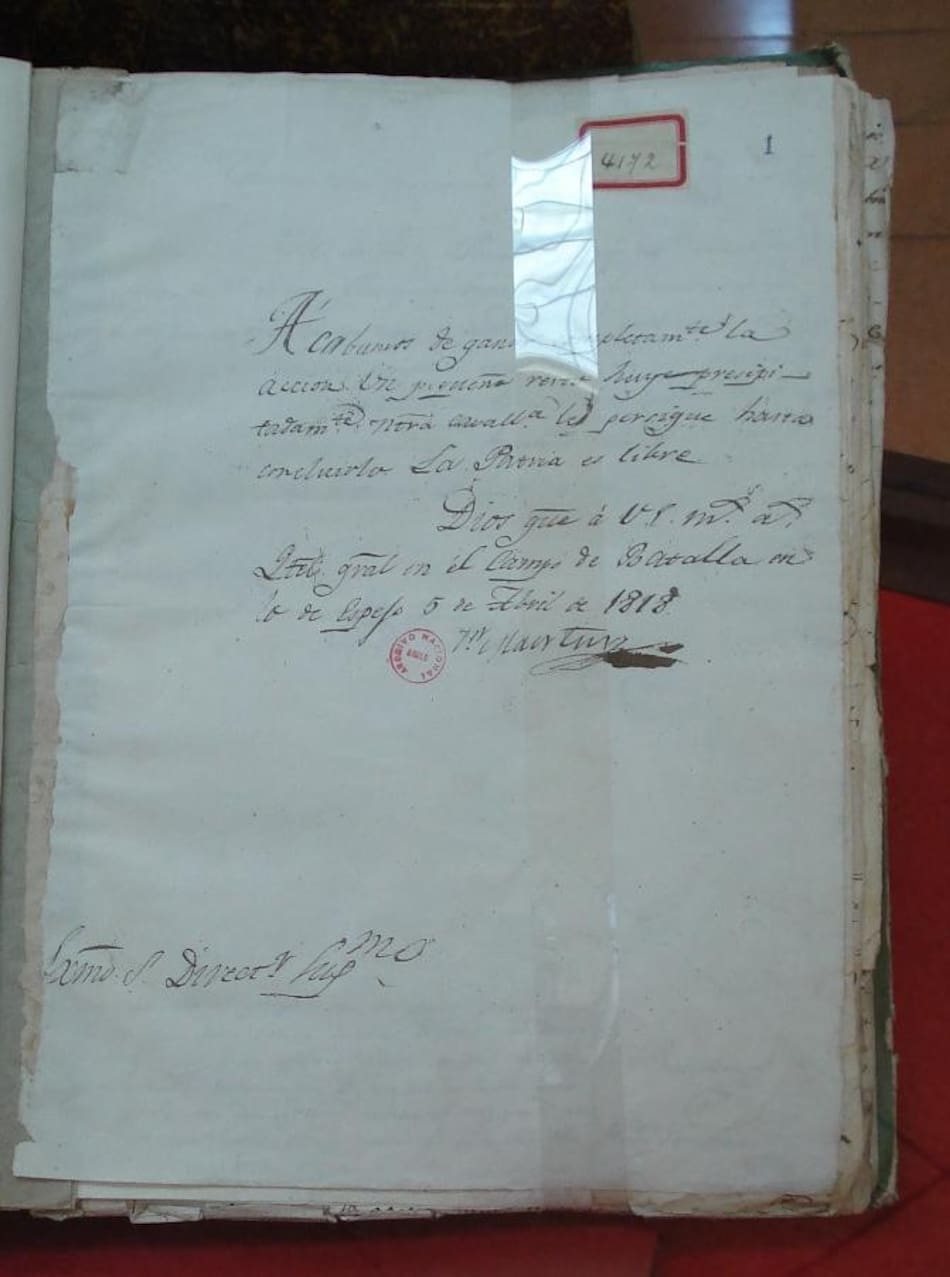 4172
1
Acabamos de gan completam.te la
accion. Un pequeño resto huye presipi-
tadam.te, Ntra cavall.a le persigue hasta
concluirlo. La Patria es libre
Dios gue á V.E. m.s a.s
Qtel. gral en el Campo de Batalla en
lo de Espejo 5 de Abril de 1818.
Martin
ARCHIVO NACIONAL
Exmo. S. Direct.r Sup.mo